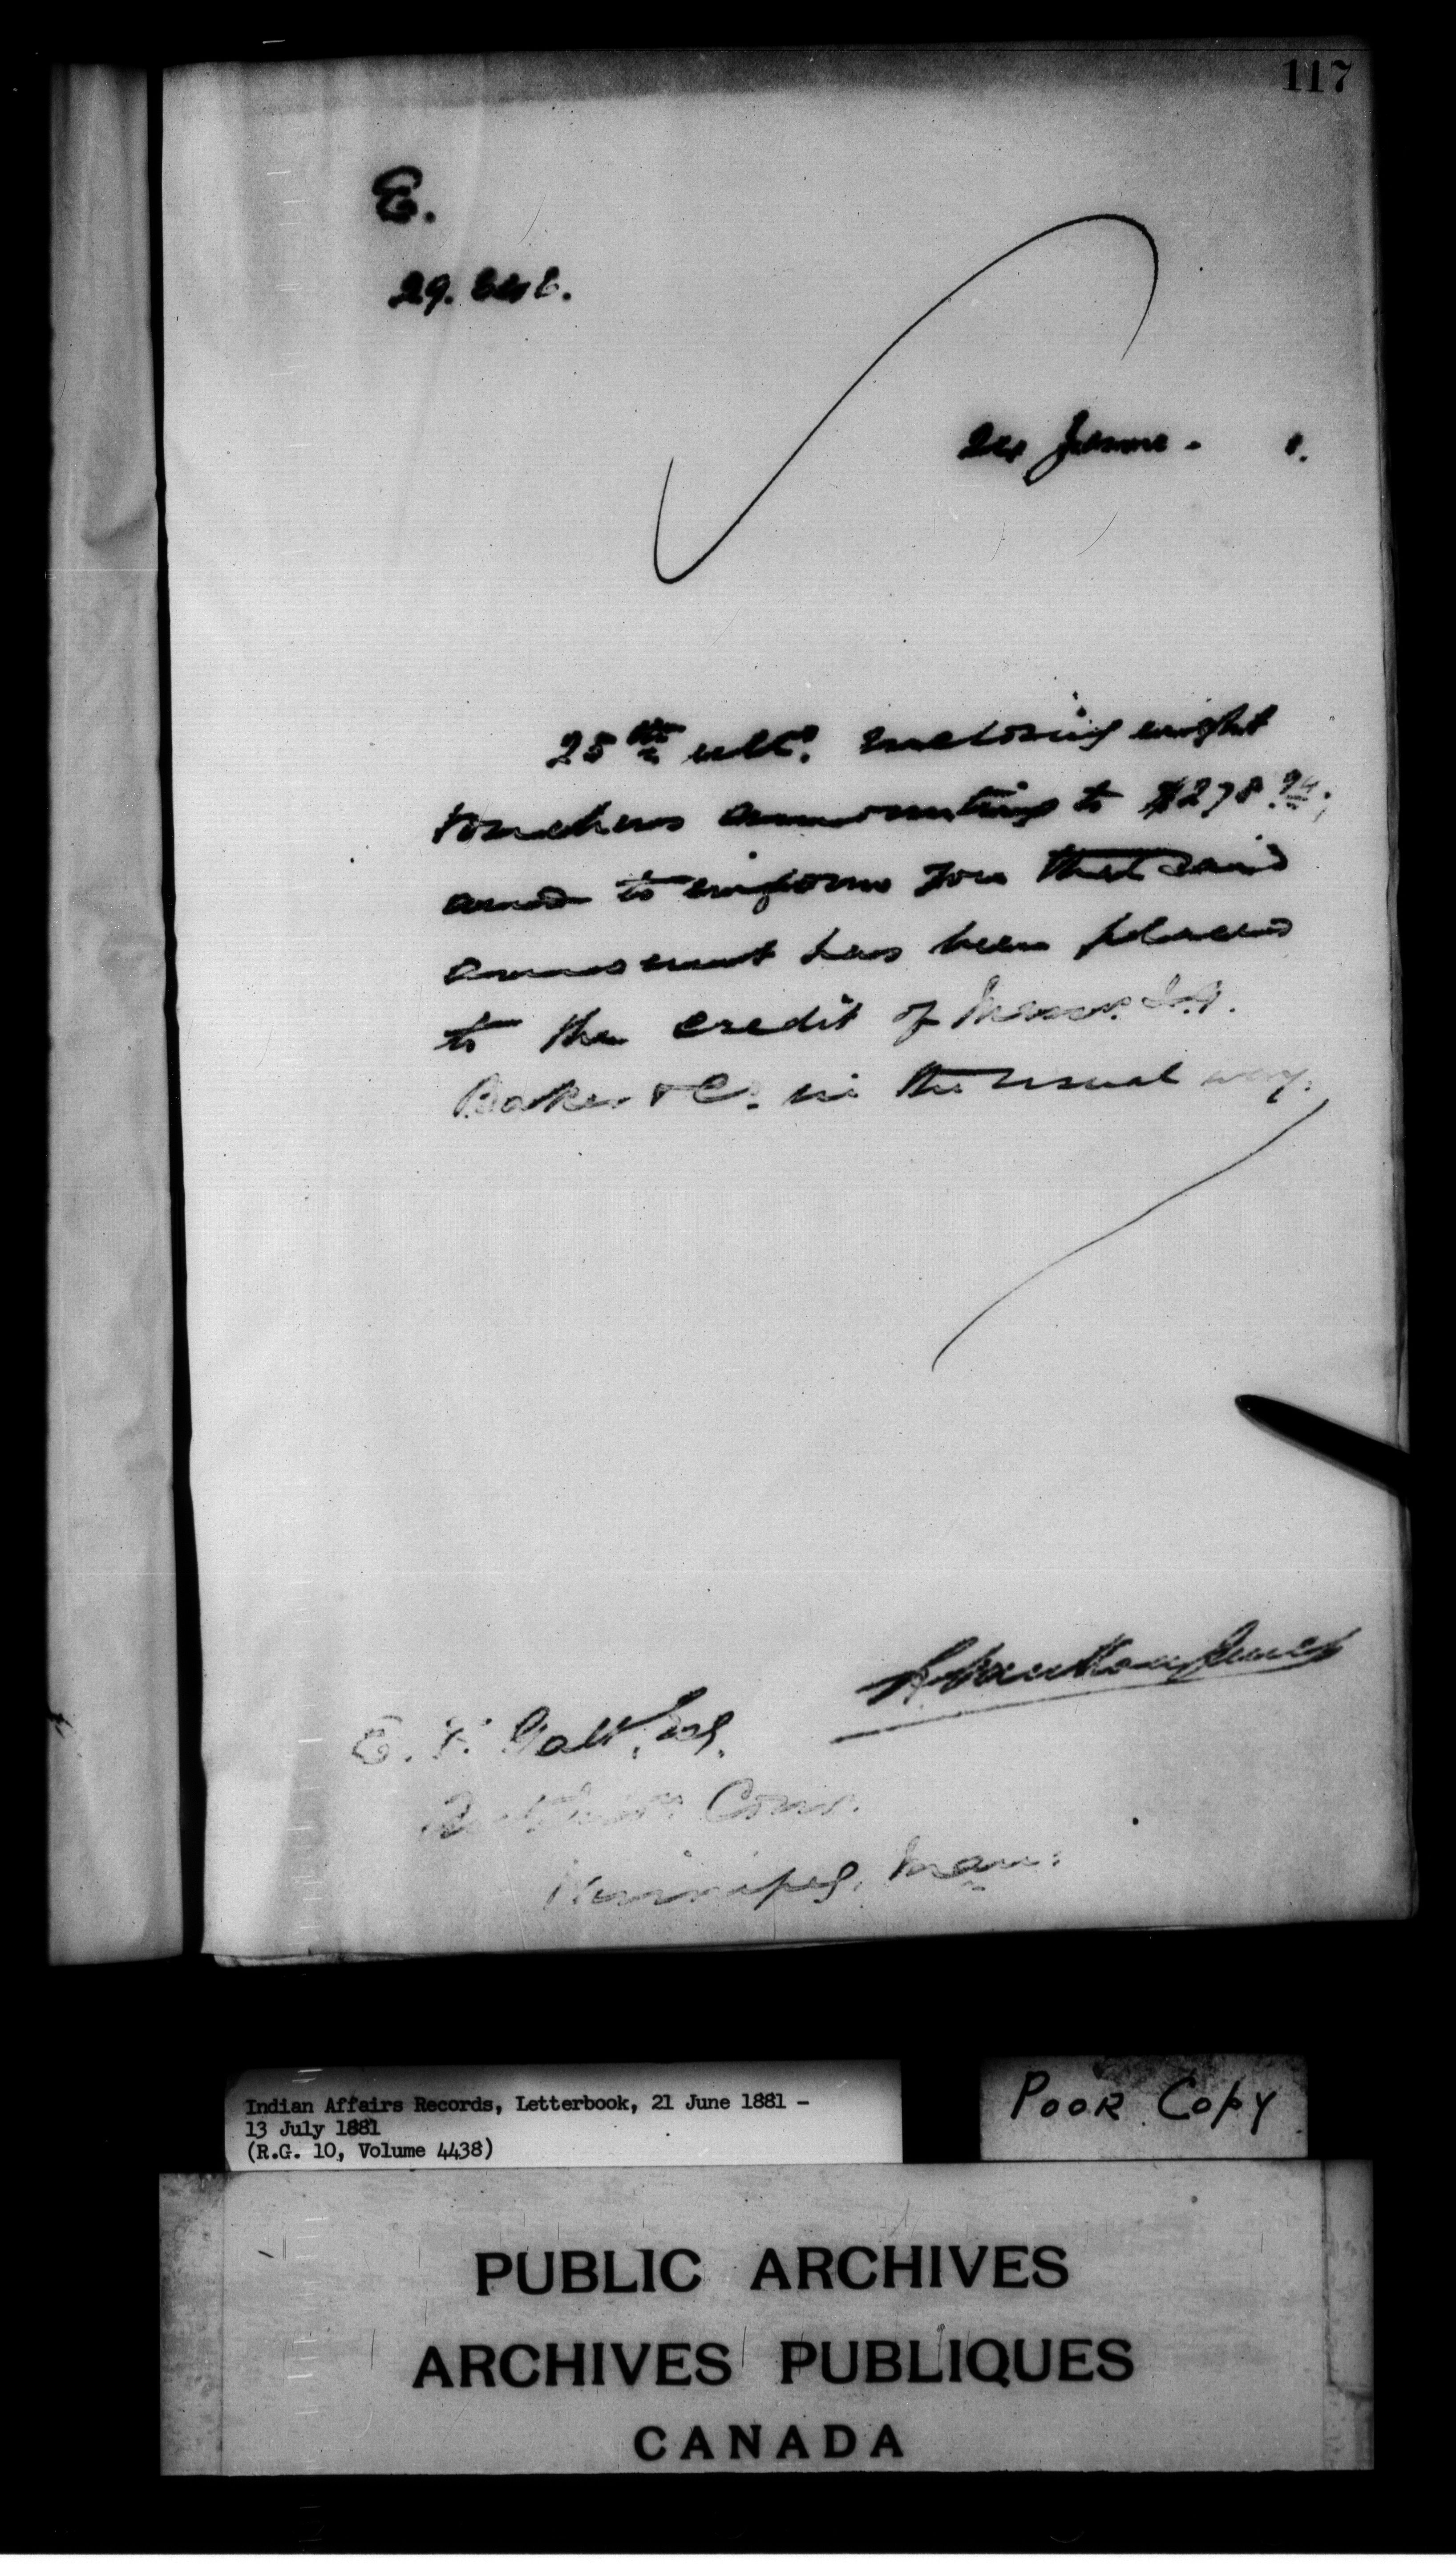 117
E.
29.
24 June - 1.
25th ulto. enclosing eight
vouchers amounting to $278.94,
and to inform you that said
amount has been placed
to the credit of Messrs. I.G.
Baker & Co. in the usual way.
E. T. Galt, Esq.
Asst Ind. Comr.
Winnipeg, Man:
Indian Affairs Records, Letterbook, 21 June 1881 -
13 July 1881
(R.G. 10, Volume 4438)
POOR COPY
PUBLIC ARCHIVES
ARCHIVES PUBLIQUES
CANADA